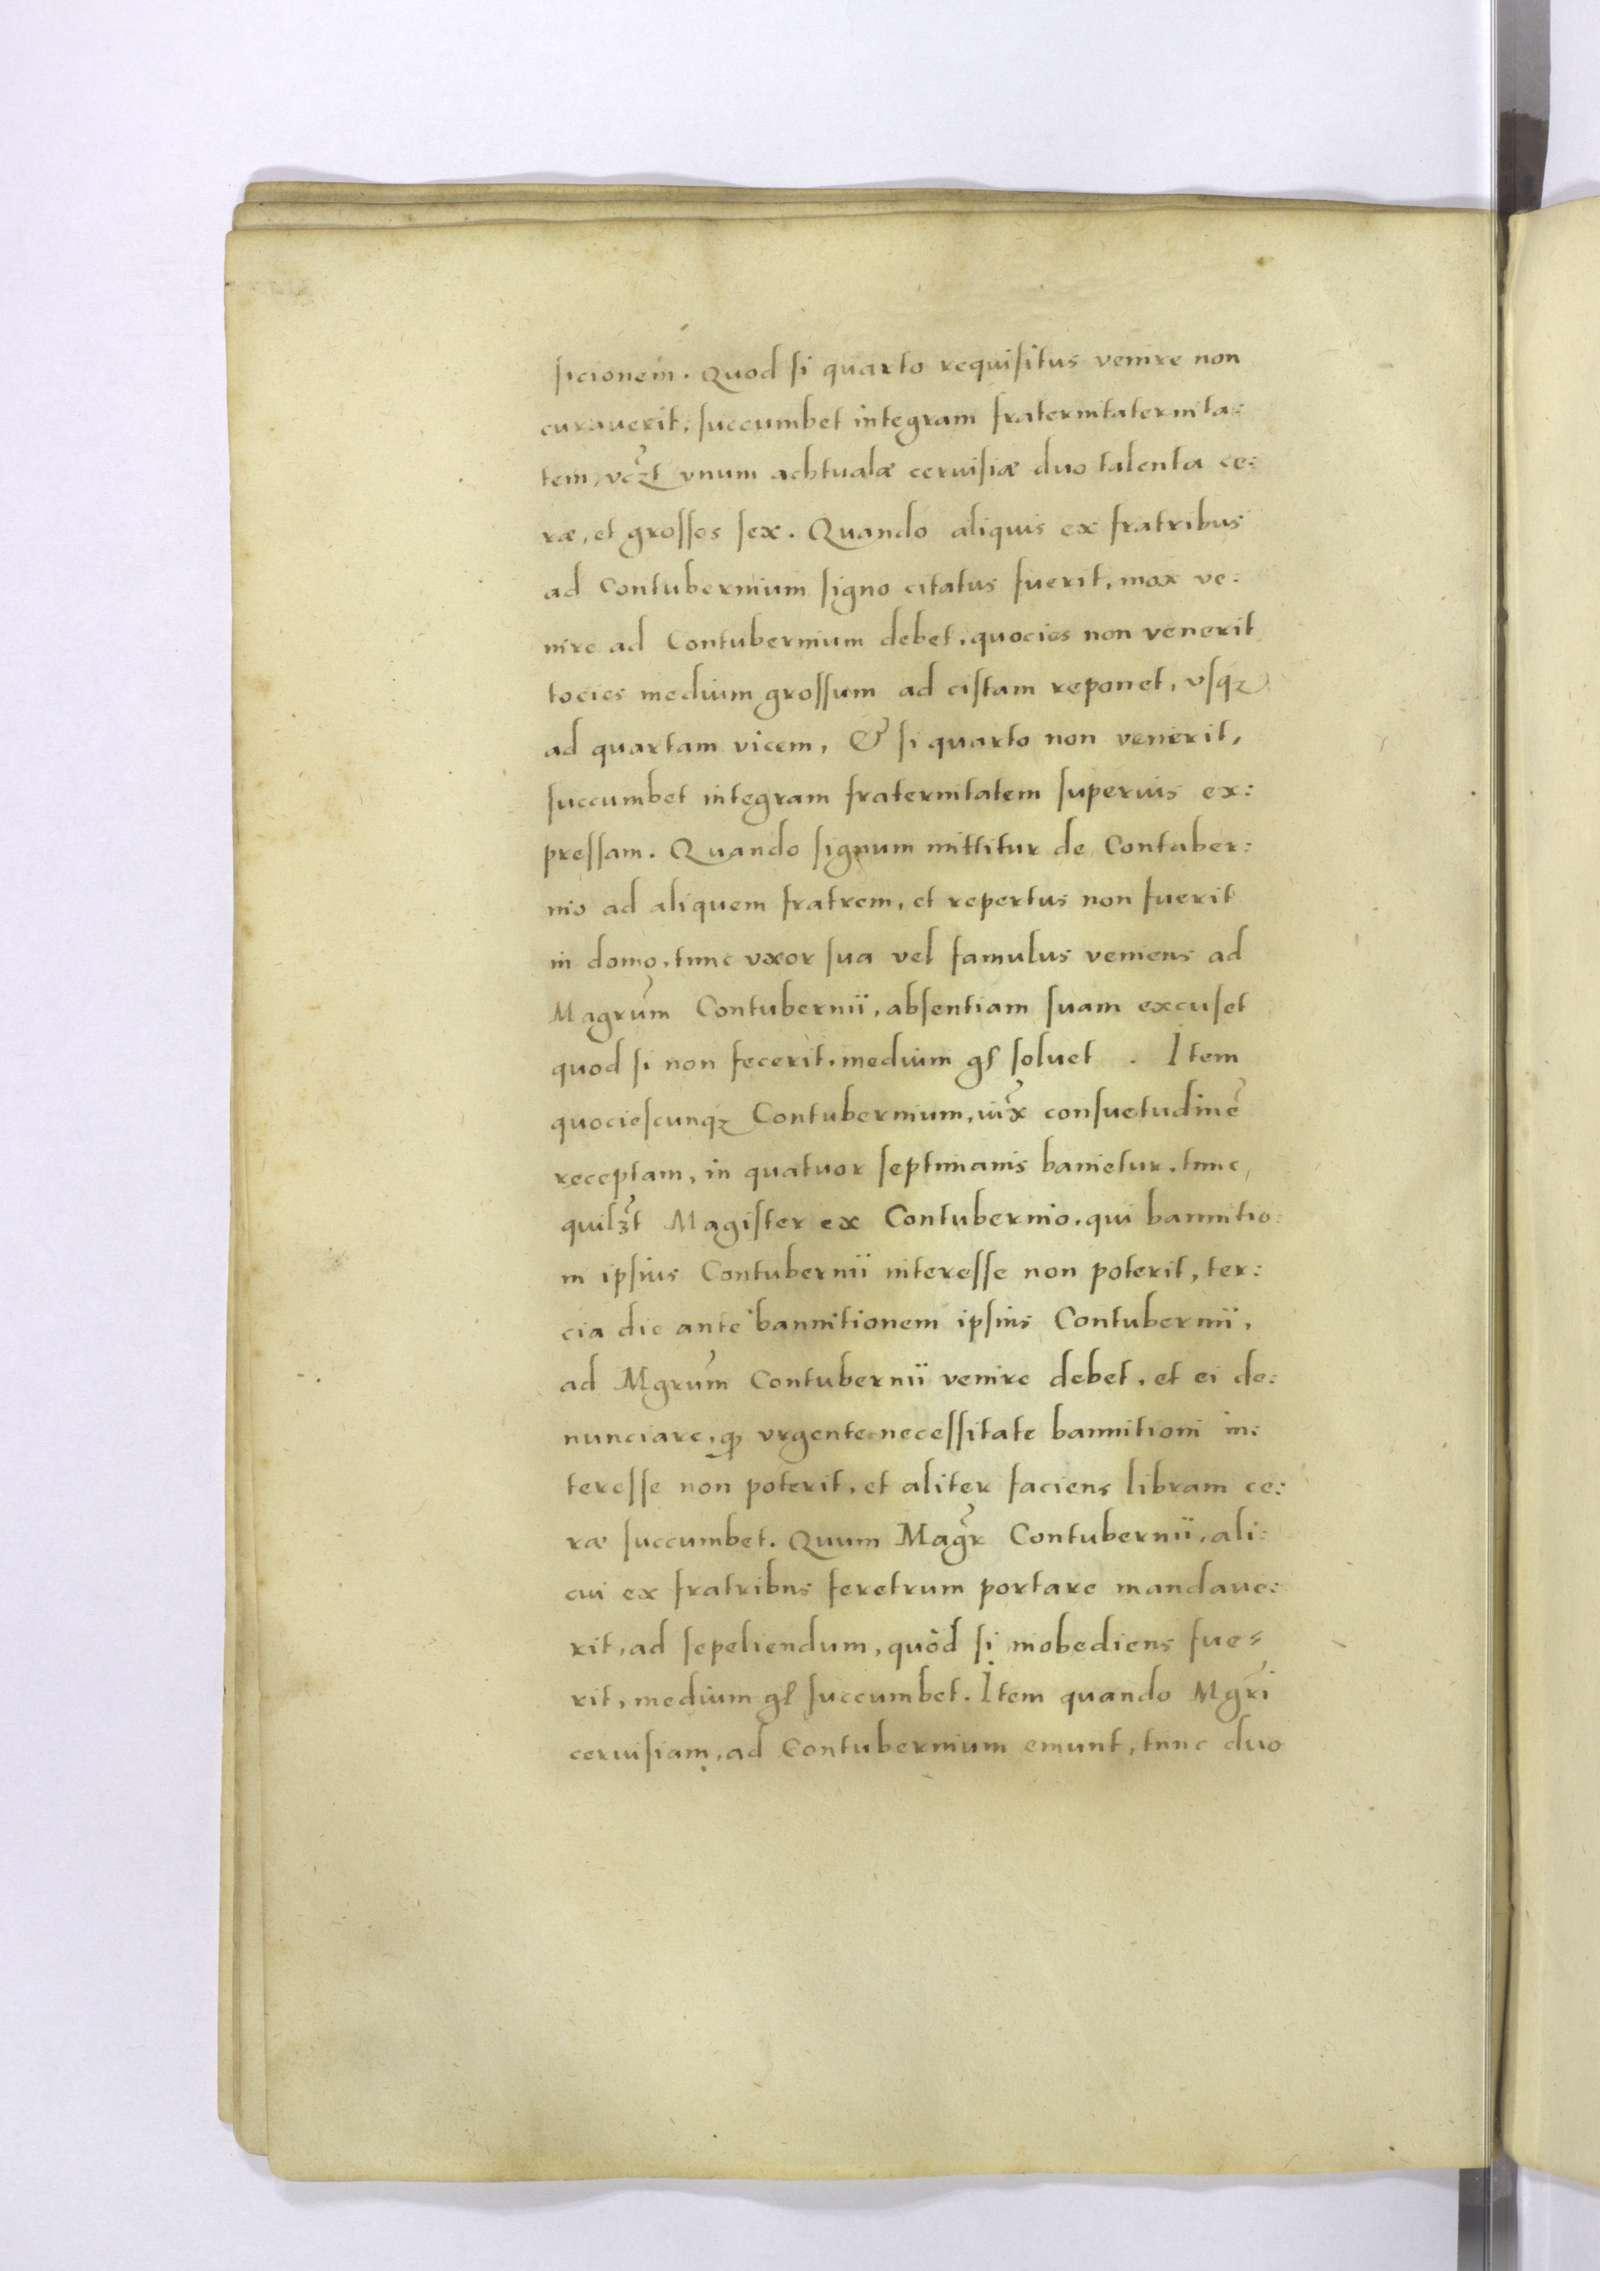 sicionem. Quod si quarto requisitus venire non
curauerit, succumbet integram fraternitaternita:
tem, vczt vnum achtualæ ceruisiæ duo talenta ce:
ræ, et grossos sex. Quando aliquis ex fratribus
ad Contubernium signo citatus fuerit, mox ve:
nire ad Contubernium debet, quocies non venerit
tocies medium grossum ad cistam reponet, vsqꝫ
ad quartam vicem, & si quarto non venerit,
succumbet integram fraternitatem superuis ex:
pressam. Quando signum mittitur de Contuber:
nio ad aliquem fratrem, et repertus non fuerit
in domo, tunc vxor sua vel famulus veniens ad
Magrum Contubernii, absentiam suam excuset
quod si non fecerit, medium gſ soluet. Item
quociescunqꝫ Contubernium, iux̃ consuetudinẽ
receptam, in quatuor septimanis banietur, tunc
quilꝫt Magister ex Contubernio, qui bannitio:
ni ipsius Contubernii interesse non poterit, ter:
cia die ante bannitionem ipsius Contubernii,
ad Mgrum Contubernii venire debet, et ei de:
nunciare, ꝙ vrgente necessitate bannitioni in:
teresse non poterit, et aliter faciens libram ce:
ræ succumbet. Quum Magr Contubernii, ali:
cui ex fratribus feretrum portare mandaue:
rit, ad sepeliendum, quòd si inobediens fue:
rit, medium gſ succumbet. Item quando Mgri
ceruisiam, ad Contubernium emunt, tunc duo